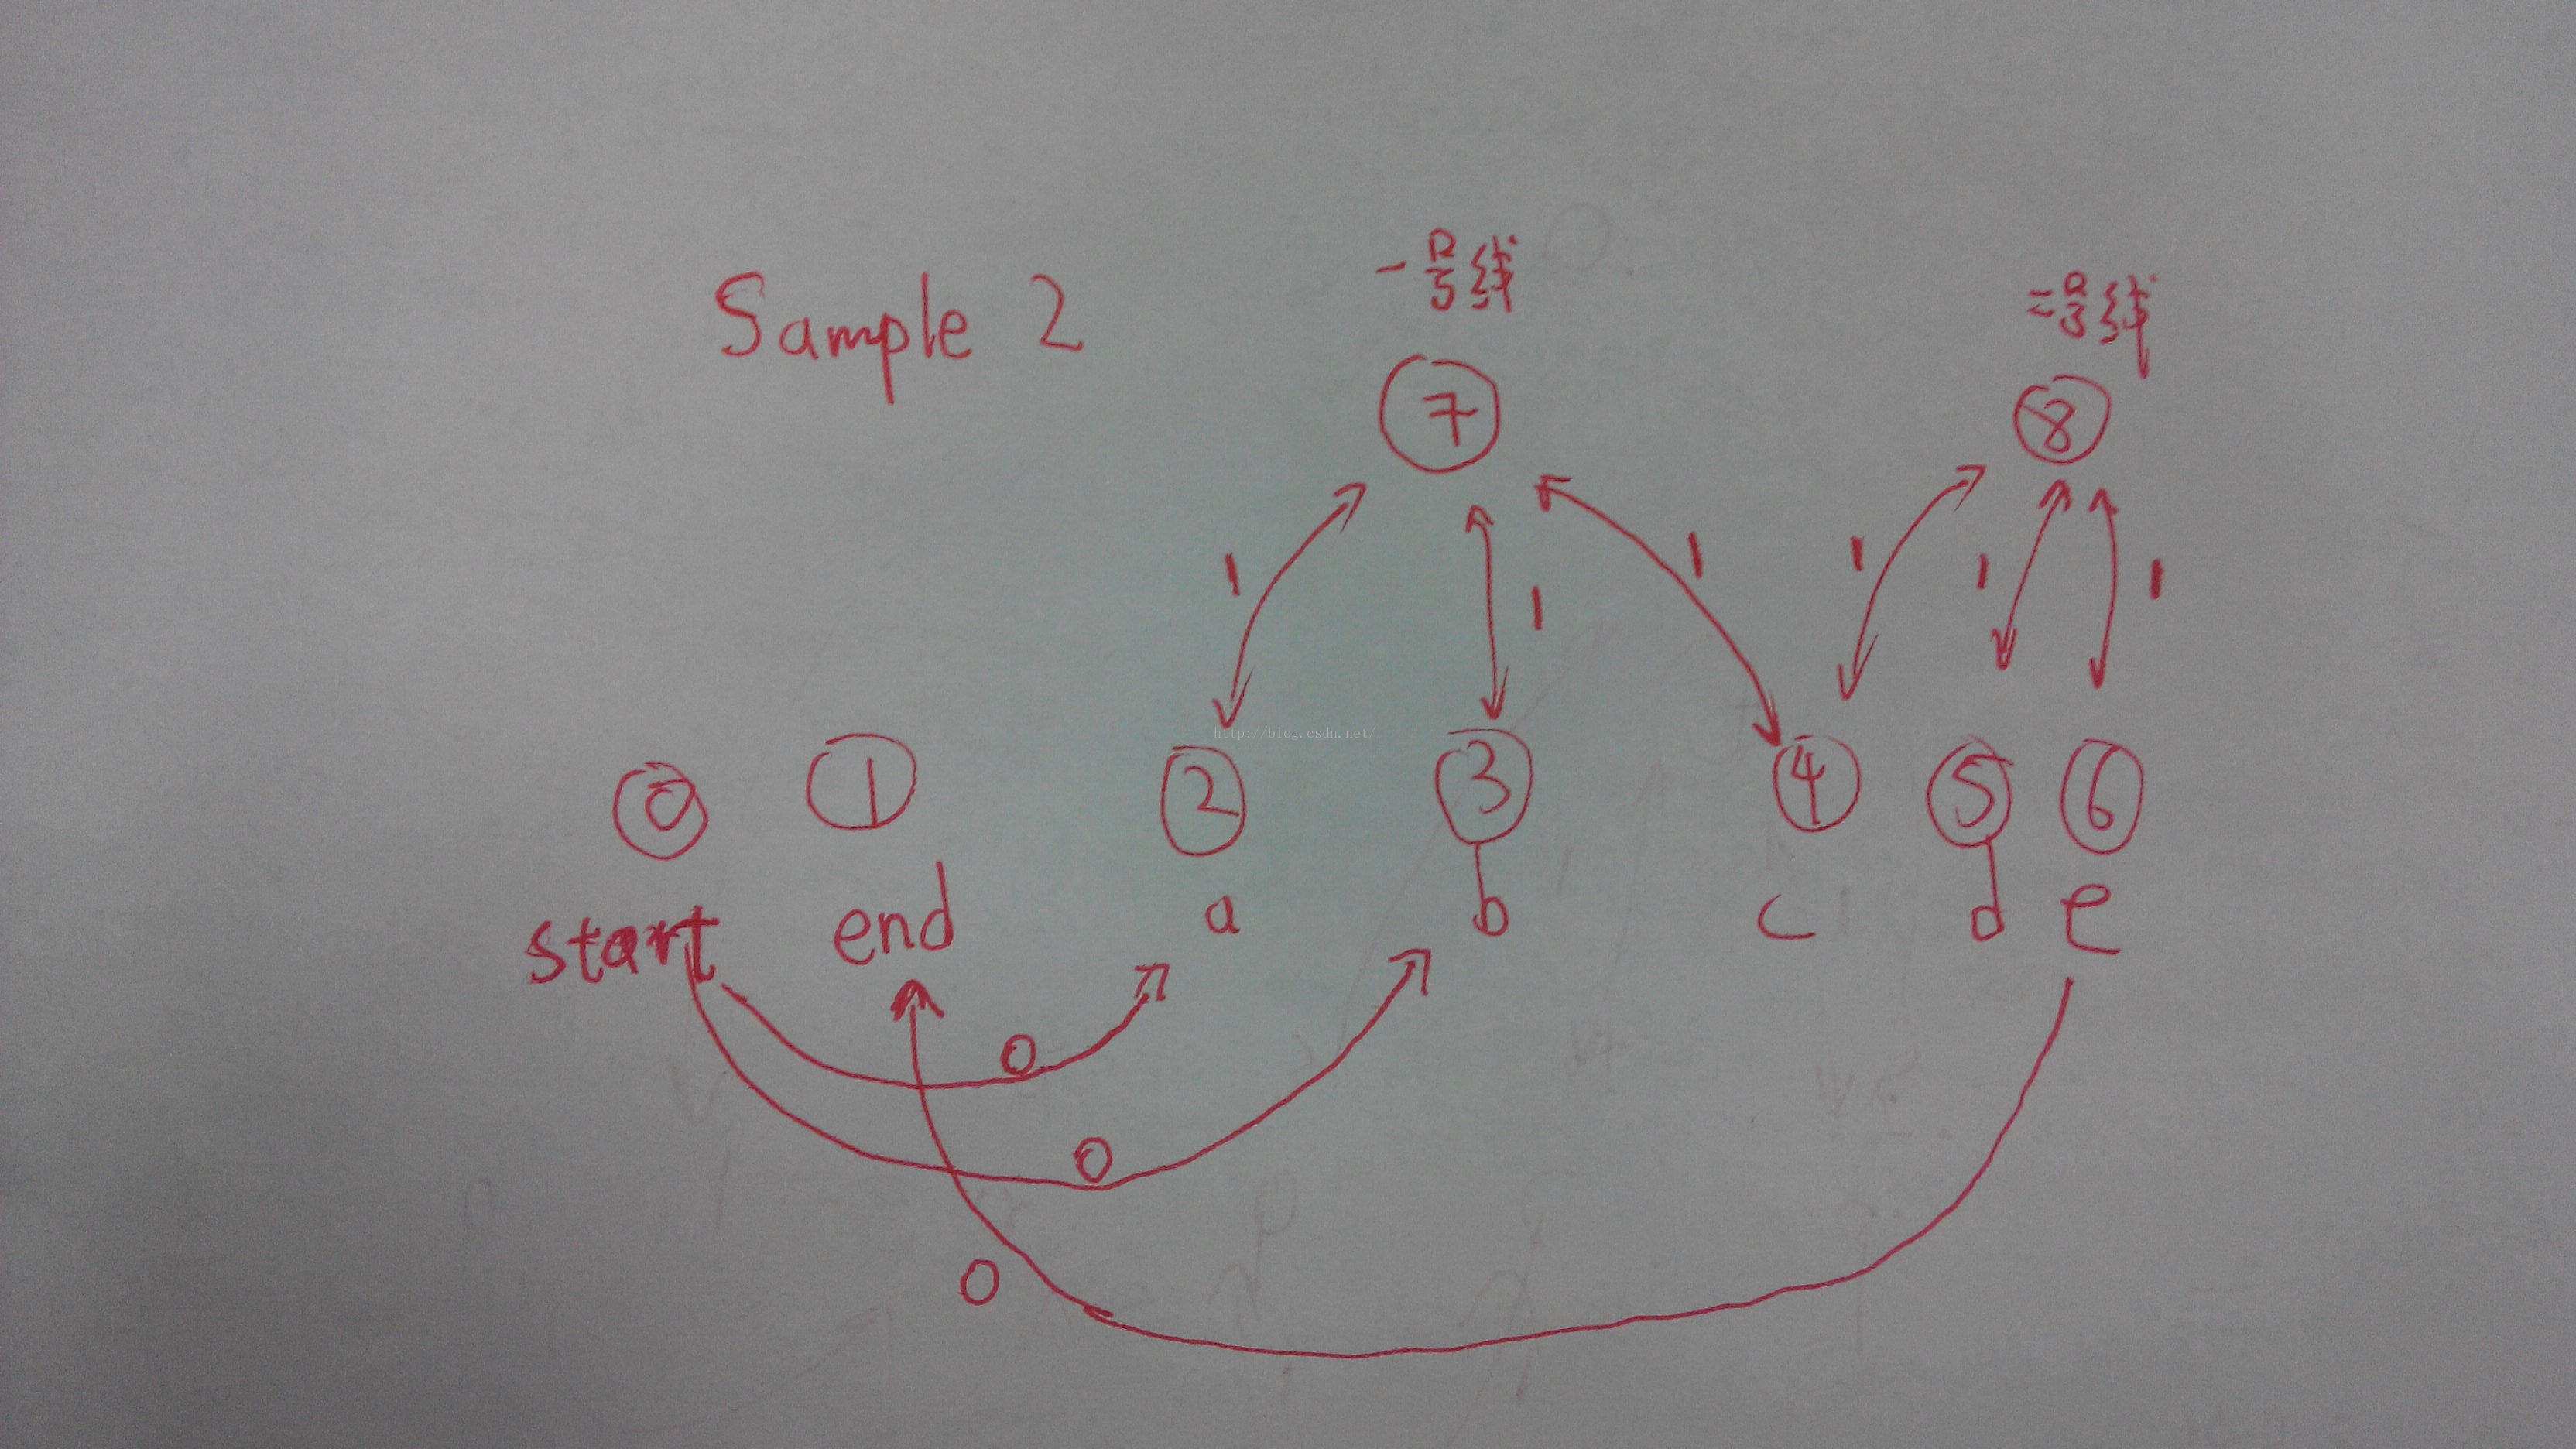 Sample 2
一号线
二号线
7
8
1
1
1
1
1
1
http://blog.csdn.net/
0 1 2 3 4 5 6
start end a b c d e
0
0
0